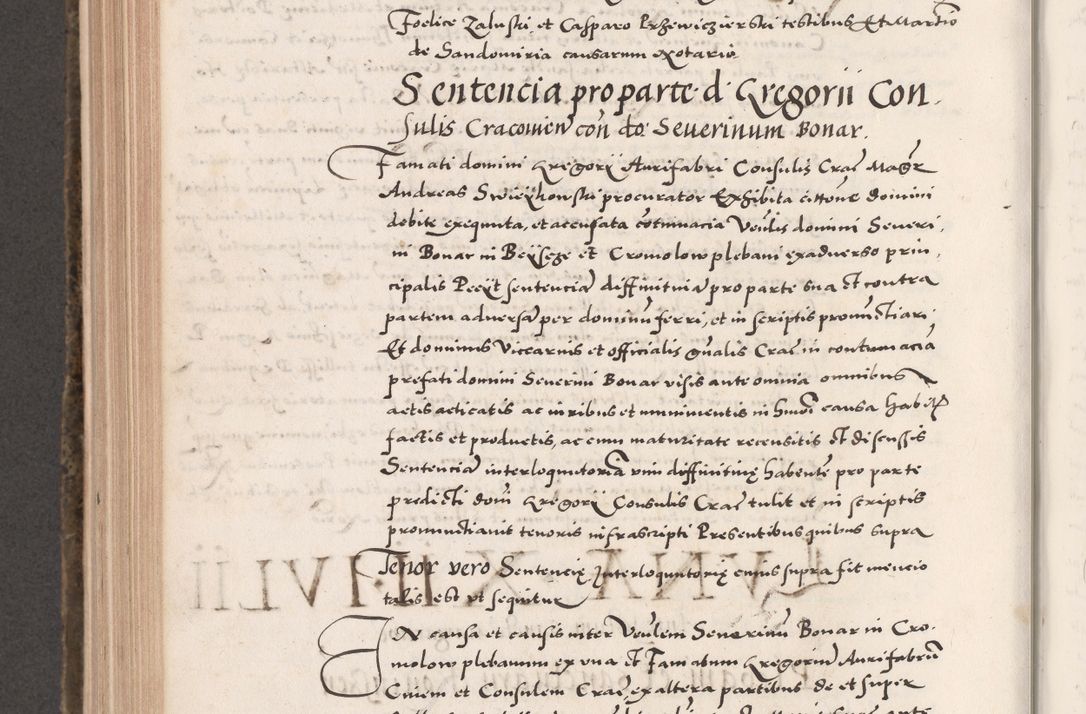 Foelice Zaluski, et Casparo Przewiczierski testibus Et Martio
de Sandomiria causarum notario
Sentencia pro parte d. Gregorii Con.
sulis Cracovien con do. Severinum Bonar.
Famati domini Gregorij Aurifabri Consulis Crac Magr
Andreas procurator Exhibita cittone domini
debite exequuta, et accusata cotumacia Venlis domini Severi,
ni Bonar in et Cromolow plebani ex adverso prin,
cipalis Peeijt sentencia diffinitiva pro parte sua et contra
partem adversa per dominu ferri, et in scriptis pronunctiari
Et dominus Vicearius et officialis gnalis Crac in contumacia
prefati domini Severini Bonar visis ante omnia omnibus
actis acticatis ac iuribus et munimentis in hmoi causa habit
factis et productis, ac cum maturitate recensitis et discussis
Sentencia interloquutoria vim diffinitivę habente pro parte
predicti domi Gregorij Consulis Crac tulit et in scriptis
pronunctiavit tenoris infrascripti Presentibus quibus supra
Tenor vero Sentencię Interloquutorię cuius supra fit mencio
talis est vt sequitur
In causa et causis inter Venlem Severinu Bonar in Cro-
molow plebanum ex vna et Famatum Gregoriu Aurifabru
Civem et Consulem Crac, ex altera partibus de et super